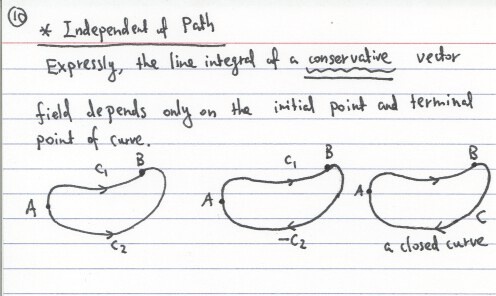 10
* Independent of Path
Expressly, the line integral of a conservative vector
field depends only on the initial point and terminal
point of curve.
A C1 B C2
A C1 B -C2
A B C
a closed curve